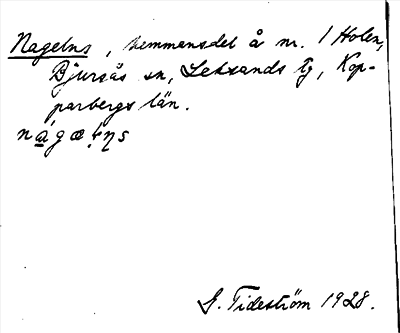 Nagelns, hemmansdel å nr. 1 Holen,
Bjursås sn, Leksands tg, Kop-
parbergs län.
nagæḷṇs
G. Tideström 1928.